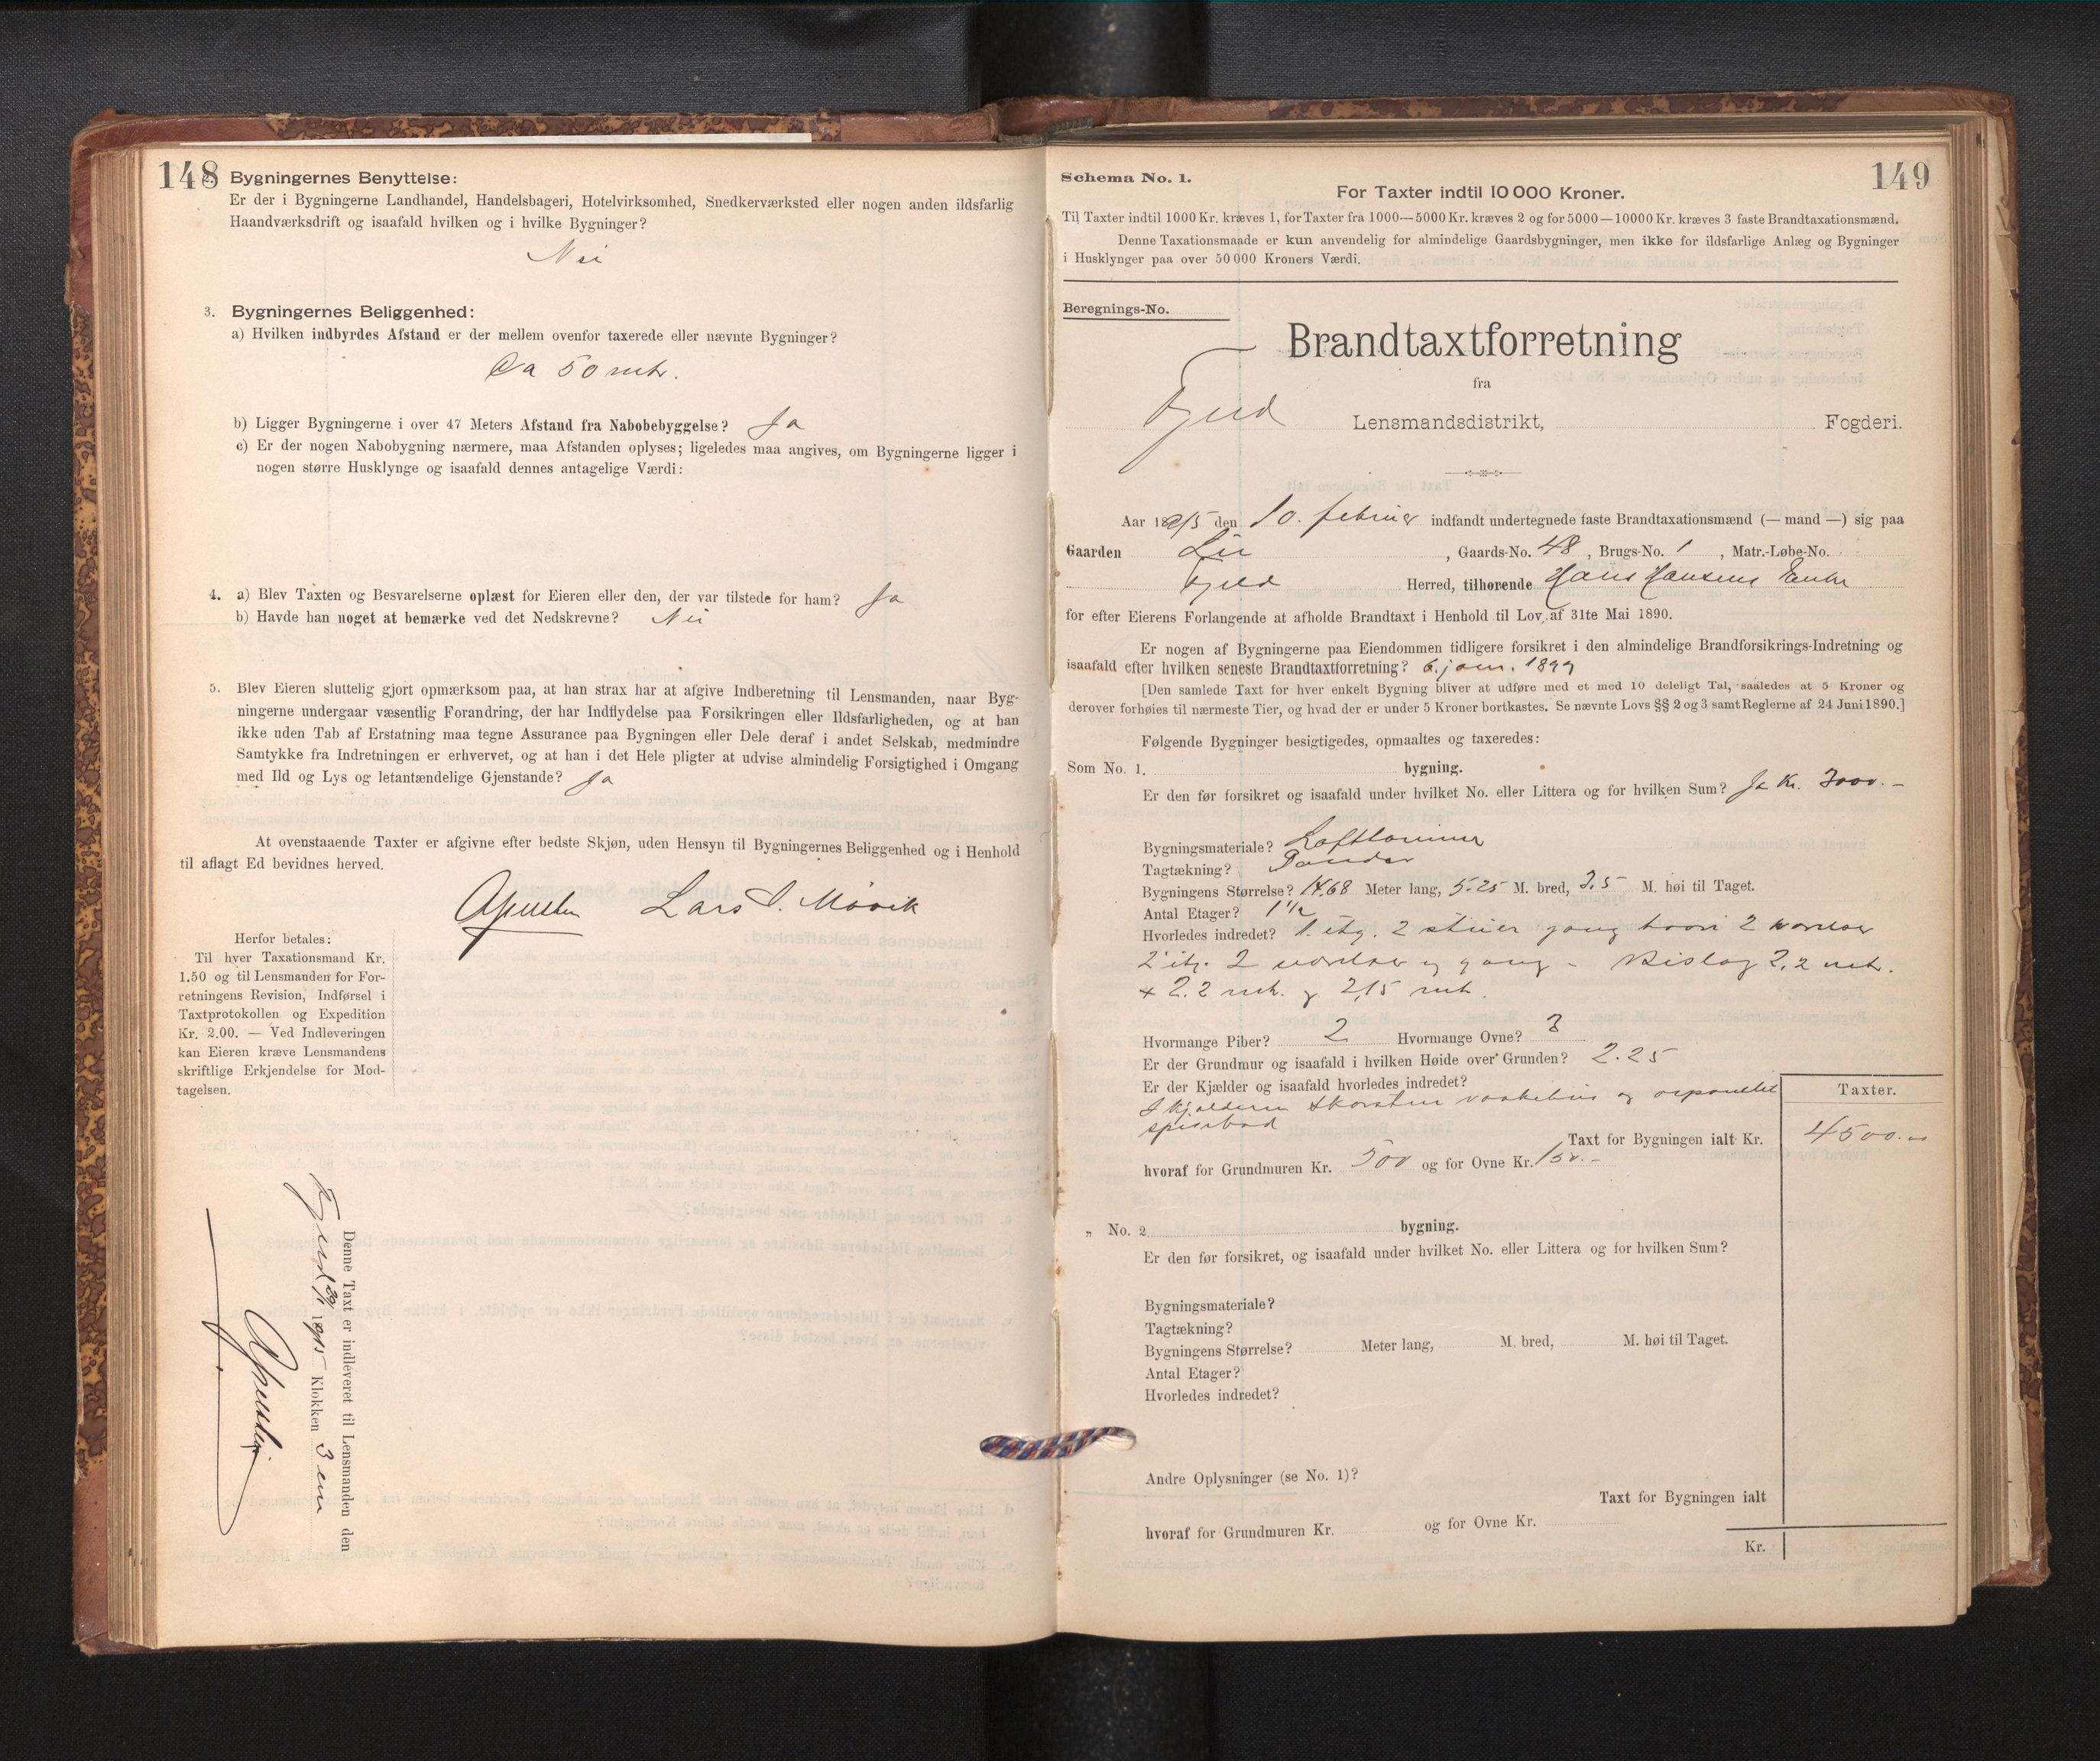 148
2. Bygningernes Benyttelse:
Er der i Bygningerne Landhandel, Handelsbageri, Hotelvirksomhed, Snedkerværksted eller nogen anden ildsfarlig
Haandværksdrift og isaafald hvilken og i hvilke Bygninger?
Nei
3. Bygningernes Beliggenhed:
a) Hvilken indbyrdes Afstand er der mellem ovenfor taxerede eller nævnte Bygninger?
Ca 50 mtr.
b) Ligger Bygningerne i over 47 Meters Afstand fra Nabobebyggelse? Ja
c) Er der nogen Nabobygning nærmere, maa Afstanden oplyses; ligeledes maa angives, om Bygningerne ligger i
nogen større Husklynge og isaafald dennes antagelige Værdi:
4. a) Blev Taxten og Besvarelserne oplæst for Eieren eller den, der var tilstede for ham? Ja
b) Havde han noget at bemærke ved det Nedskrevne? Nei
5. Blev Eieren sluttelig gjort opmærksom paa, at han strax har at afgive Indberetning til Lensmanden, naar Byg-
ningerne undergaar væsentlig Forandring, der har Indflydelse paa Forsikringen eller Ildsfarligheden, og at han
ikke uden Tab af Erstatning maa tegne Assurance paa Bygningen eller Dele deraf i andet Selskab, medmindre
Samtykke fra Indretningen er erhvervet, og at han i det Hele pligter at udvise almindelig Forsigtighed i Omgang
med Ild og Lys og letantændelige Gjenstande? Ja
At ovenstaaende Taxter er afgivne efter bedste Skjøn, uden Hensyn til Bygningernes Beliggenhed og i Henhold
til aflagt Ed bevidnes herved.
Lars I. Møvik
Herfor betales:
Til hver Taxationsmand Kr.
1.50 og til Lensmanden for For-
retningens Revision, Indførsel i
Taxtprotokollen og Expedition
Kr. 2.00. — Ved Indleveringen
kan Eieren kræve Lensmandens
skriftlige Erkjendelse for Mod-
tagelsen.
Denne Taxt er indleveret til Lensmanden den
1915 Klokken 3 em
149
Schema No. 1.
For Taxter indtil 10 000 Kroner.
Til Taxter indtil 1000 Kr. kræves 1, for Taxter fra 1000—5000 Kr. kræves 2 og for 5000—10000 Kr. kræves 3 faste Brandtaxationsmænd.
Denne Taxationsmaade er kun anvendelig for almindelige Gaardsbygninger, men ikke for ildsfarlige Anlæg og Bygninger
i Husklynger paa over 50 000 Kroners Værdi.
Beregnings-No.
Brandtaxtforretning
fra
Fjeld Lensmandsdistrikt, Fogderi.
Aar 1915 den 10. februar indfandt undertegnede faste Brandtaxationsmænd (— mand —) sig paa
Gaarden Lie, Gaards-No. 48, Brugs-No. 1, Matr.-Løbe-No.
Fjeld Herred, tilhørende Hans Hansens Enke
for efter Eierens Forlangende at afholde Brandtaxt i Henhold til Lov af 31te Mai 1890.
Er nogen af Bygningerne paa Eiendommen tidligere forsikret i den almindelige Brandforsikrings-Indretning og
isaafald efter hvilken seneste Brandtaxtforretning? 6. jan. 1899
[Den samlede Taxt for hver enkelt Bygning bliver at udføre med et med 10 deleligt Tal, saaledes at 5 Kroner og
derover forhøies til nærmeste Tier, og hvad der er under 5 Kroner bortkastes. Se nævnte Lovs §§ 2 og 3 samt Reglerne af 24 Juni 1890.]
Følgende Bygninger besigtigedes, opmaaltes og taxeredes:
Som No. 1. bygning.
Er den før forsikret og isaafald under hvilket No. eller Littera og for hvilken Sum? Ja Kr. 3000.-
Bygningsmateriale? Lafttømmer
Tagtækning? Pander
Bygningens Størrelse? 14.68 Meter lang, 5.25 M. bred, 3.5 M. høi til Taget.
Antal Etager? 1 1/2
Hvorledes indredet? 1. etg. 2 stuer gang hvori 2 værelser
2 etg. 2 værelser og gang - Bislag 2,2 mtr.
+ 2.2 mtr. og 2,15 mtr.
Hvormange Piber? 2 Hvormange Ovne? 3
Er der Grundmur og isaafald i hvilken Høide over Grunden? 2.25
Er der Kjælder og isaafald hvorledes indredet?
I kjælderen skorsten vaskehus og
Taxt for Bygningen ialt Kr.
hvoraf for Grundmuren Kr. 500 og for Ovne Kr. 150.-
Taxter.
4500.-
„ No. 2 bygning.
Er den før forsikret, og isaafald under hvilket No. eller Littera og for hvilken Sum?
Bygningsmateriale?
Tagtækning?
Bygningens Størrelse? Meter lang, M. bred, M. høi til Taget.
Antal Etager?
Hvorledes indredet?
Andre Oplysninger (se No. 1)?
Taxt for Bygningen ialt
hvoraf for Grundmuren Kr. og for Ovne Kr.
Kr.